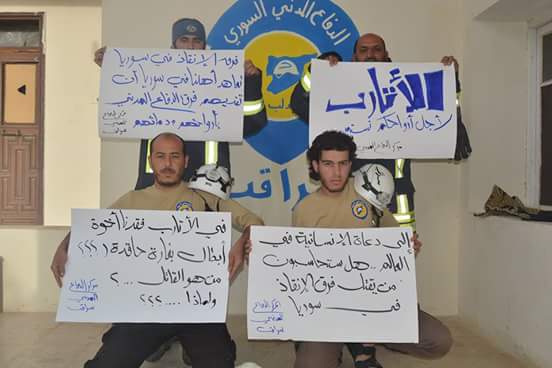 الدفاع المدني السوري
سراقب
فرق الانقاذ في سوريا
تعاهد أهلنا في سوريا أن
تفديهم فرق الدفاع المدني
بأرواحهم ودمائهم
مركز الدفاع
المدني
سراقب
الأتارب
لأجل أرواحكم
مركز الدفاع المدني
في الأتارب فقدنا اخوة
أبطال بغارة حاقدة !؟؟؟
من هو القاتل ...؟
ولماذا ....؟؟؟
مركز الدفاع
المدني
سراقب
إلى دعاة الانسانية في
العالم .. هل ستحاسبون
من يقتل فرق الانقاذ
في سوريا
مركز الدفاع
المدني
سراقب